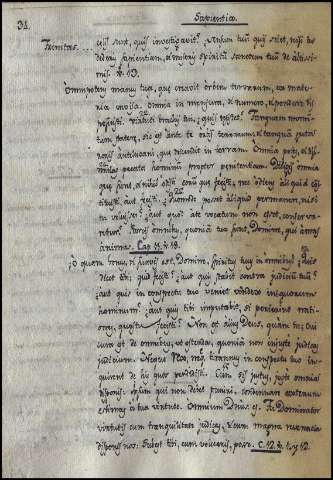 31.
Sapientia.
Trinitas.... cœlis sunt, quis investigavit? Sensum tuū quis sciet, nisi tu
dederis sapientiam, et miseris spiritū sanctum tuū de altissi-
mis. v. 17.
omnipotens manus tua, quæ creavit orbem terrarum, ex mate-
ria invisa. Omnia in mensura, et numero, et pondere dis-
posuisti. Virtuti brachii tui, quis resistet? Tanquam momen-
tum stateræ, sic est ante te orbis terrarum, et tanquam gutta
roris antelucani, quæ descendit in terram. omnia potes, et dissi-
mulas peccata hominum propter pœnitentiam. Diligis omnia
quæ sunt, et nihil odisti eorum quæ fecisti, nec odiens aliquid con-
stituisti, aut fecisti. Quomodo posset aliquid permanere, nisi
tu voluisses? aut quod a te vocatum non esset, conserva-
retur? Parcis omnibus, quoniā tua sunt, Domine, qui amas
animas. Cap. 11. v. 18.
o quam bonus, et suavis est, Domine, spiritus tuus in omnibus! Quis
dicet tibi; quid fecisti? aut quis stabit contra judiciū tuū?
aut quis in conspectu tuo veniet vindex iniquorum
hominum? aut quis tibi imputabit, si perierint nati-
ones, quas tu fecisti? Non est alius Deus, quàm tu, cui
cura est de omnibus, ut ostendas, quoniā non injuste judicas
judicium. Neque Rex, neq. tyrannus in conspectu tuo in-
quirent de his quos perdidisti. Cum sis justus, juste omnia
disponis: ipsum qui non debet puniri, condemnare exterum
estimas a tua virtute. Omnium Dnus. es. Tu Dominator
virtutis cum tranquilitate judicas, et cum magna reverentia
disponis nos: subest tibi, cum volueris, posse. C. 12. v. 1. y 12.